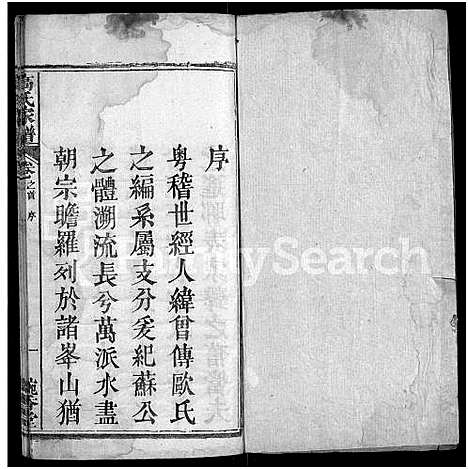 序
粵稽世經人緯曾傳歐氏
之編系屬支分爰紀蘇公
之體溯流長兮萬派水盡
朝宗瞻羅列於諸峯山猶
氏家譜
卷之首 序
一
堂
FamilySearch